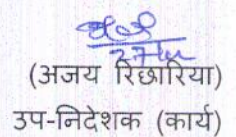 (अजय रिछारिया)
उप-निदेशक (कार्य)